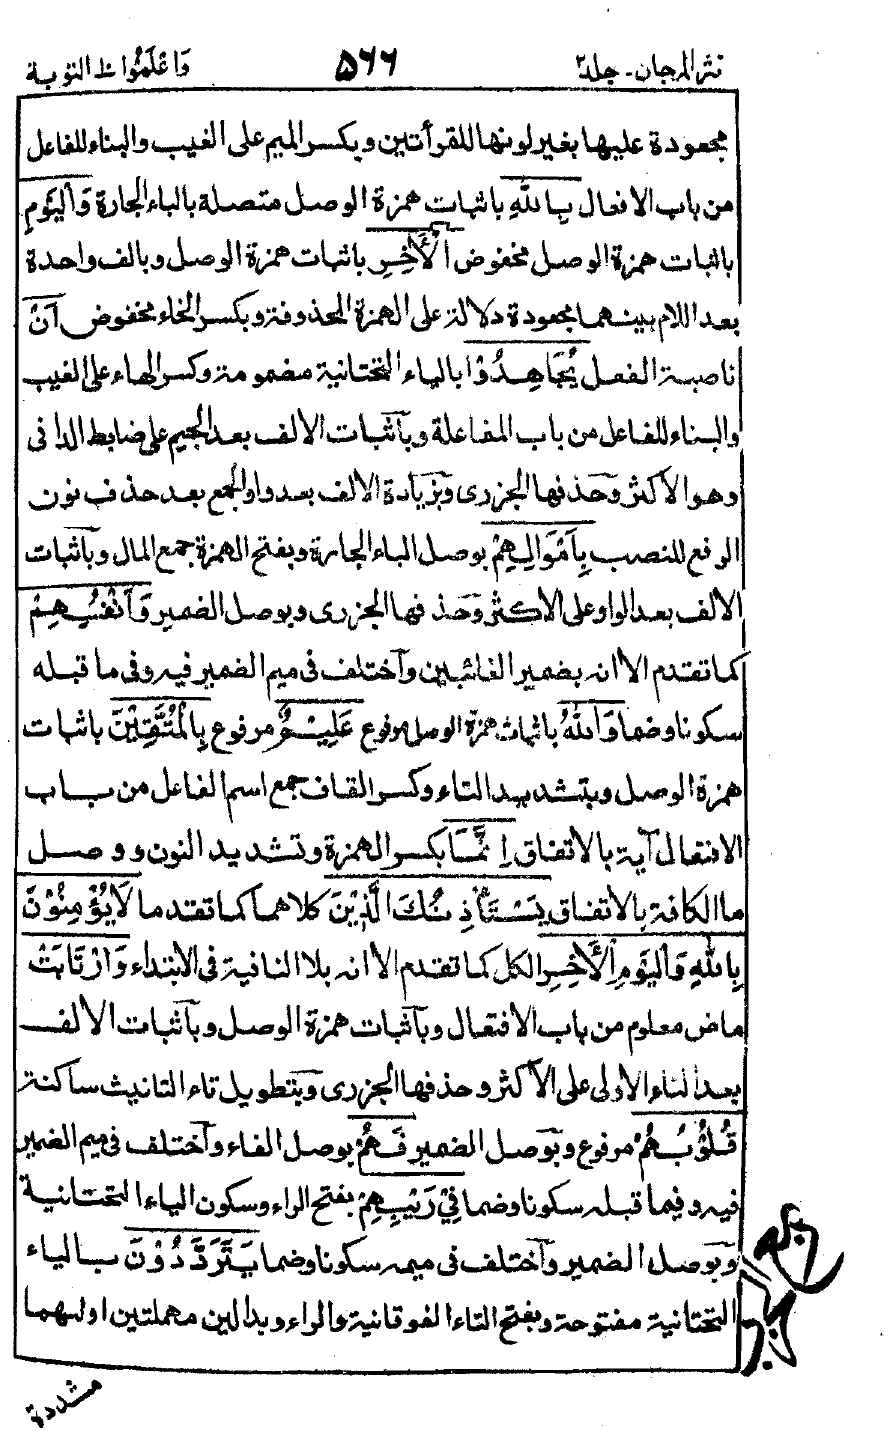 نثر المرجان - جلد ٢ ٥٦٦ وَاعْلَمُوْا ط التوبة
مجعودة عليها بغير لونها للقرأتين وبكسر الميم على الغيب والبناء للفاعل
من باب الافعال بِاللّٰهِ باثبات همزة الوصل متصلة بالباء الجارة وَالْيَوْمِ
باثبات همزة الوصل مخفوض الْاٰخِرِ باثبات همزة الوصل وبالف واحدة
بعد اللام بينهما مجعودة دلالة على الهمزة المحذوفة وبكسر الخاء مخفوض اَنْ
ناصبة الفعل يُّجَاهِدُوْا بالياء التحتانية مضمومة وكسر الهاء على الغيب
والبناء للفاعل من باب المفاعلة وباثبات الالف بعد الجيم على ضابط الدانى
وهو الاكثر وحذفها الجزرى وبزيادة الالف بعد واو الجمع بعد حذف نون
الرفع للنصب بِاَمْوَالِهِمْ بوصل الباء الجارة وبفتح الهمزة جمع المال وباثبات
الالف بعد الواو على الاكثر وحذفها الجزرى وبوصل الضمير وَاَنْفُسِهِمْ
كما تقدم الا انه بضمير الغائبين واختلف فى ميم الضمير فيه وفى ما قبله
سكونا وضما وَاللّٰهُ باثبات همزة الوصل مرفوع عَلِيْمٌ مرفوع بِالْمُتَّقِيْنَ باثبات
همزة الوصل وبتشديد التاء وكسر القاف جمع اسم الفاعل من باب
الافتعال آية بالاتفاق اِنَّمَا بكسر الهمزة وتشديد النون ووصل
ما الكافة بالاتفاق يَسْتَأْذِنُكَ الَّذِيْنَ كلاهما كما تقدما لَا يُؤْمِنُوْنَ
بِاللّٰهِ وَالْيَوْمِ الْاٰخِرِ الكل كما تقدم الا انه بلا النافية فى الابتداء وَارْتَابَتْ
ماض معلوم من باب الافتعال وباثبات همزة الوصل وباثبات الالف
بعد التاء الاولى على الاكثر وحذفها الجزرى وبتطويل تاء التانيث ساكنة
قُلُوْبُهُمْ مرفوع وبوصل الضمير فَهُمْ بوصل الفاء واختلف فى ميم الضمير
فيه وفيما قبله سكونا وضما فِيْ رَيْبِهِمْ بفتح الراء وسكون الياء التحتانية
وبوصل الضمير واختلف فى ميمه سكونا وضما يَتَرَدَّدُوْنَ بالياء
التحتانية مفتوحة وبفتح التاء الفوقانية والراء وبدالين مهملتين اولهما
مشددة